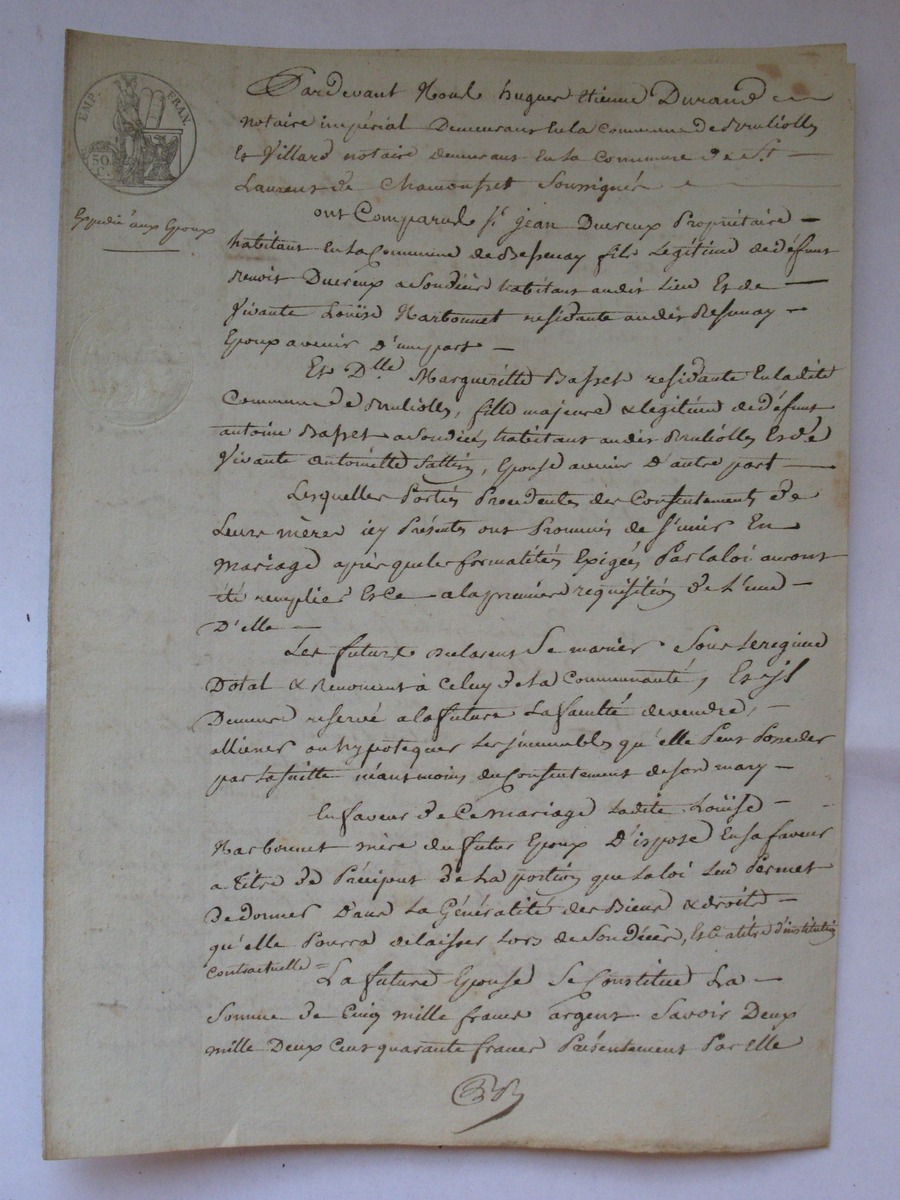 EMP. FRAN.
50
Expedié aux Epoux
Pardevant Nous hugues Etienne Durand
notaire impérial Demeurant En la Commune de Brullioles
Et Villard notaire demeurant En la Commune de St
Laurent de Chamousset Soussignés
ont Comparus Sr jean Ducreux Propriétaire
habitant En la Commune de Bessenay fils Légitime de défunt
Benoit Ducreux a Son décès habitant audit Lieu Et de
Vivante Louïse Narbonnet residante audit Bessenay
Epoux avenir D'une part
Et Dlle Margueritte Basset residante En ladite
Commune de Brullioles, fille majeure & legitime de défunt
antoine Basset a Son décès habitant audit Brullioles Et de
Vivante antoinette, Epouse avenir D'autre part
Lesquelles Parties Procedantes des Consentements de
Leurs mères icy Présentes ont Promis de S'unir En
mariage après que les formalités Exigées Par la loi auront
été remplies Et Ce a la première requisition De L'une
D'elle
Les futurs declarent Se marier Sous Le regime
Dotal & Renoncent à Celuy de La Communauté, Et jl
Demeure reservé a la future La faculté de vendre,
alliener ou hypotequer Les jmmeubles qu'elle Peut Posseder
par La Suitte néantmoins du Consentement de Son mary
En faveur de Ce mariage Ladite Louïse
Narbonnet mère du futur Epoux D'ispose En sa faveur
a titre de Préciput de La portion que La loi Lui Permet
De donner Dans La Généralité des Biens & droits
qu'elle Pourra delaisser Lors de Son décès, Et Ce a titre d'institution
Contractuelle =
La future Epouse Se Constitue La
Somme de Cinq mille francs argent Savoir Deux
mille Deux Cent quarante francs Présentement Par Elle